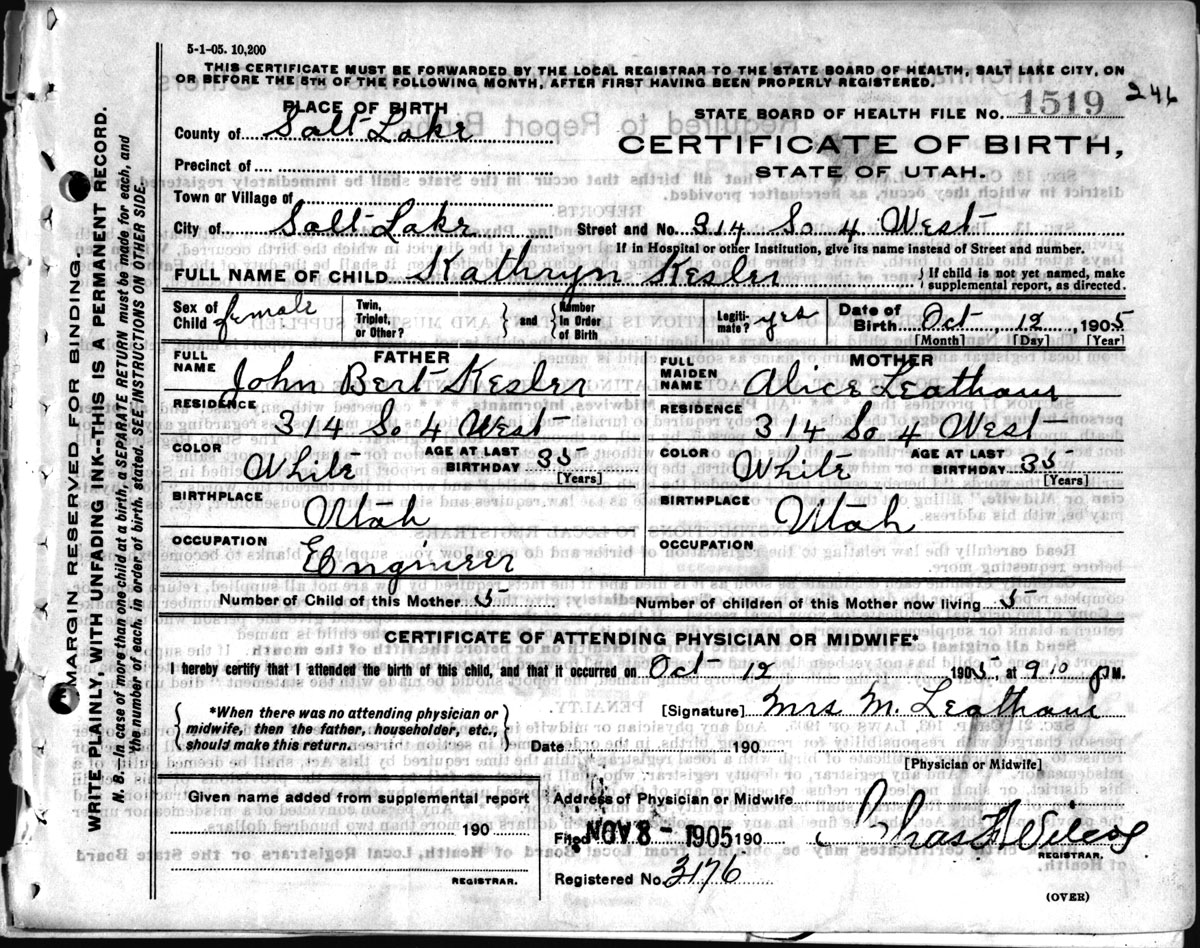 5-1-05. 10,200
THIS CERTIFICATE MUST BE FORWARDED BY THE LOCAL REGISTRAR TO THE STATE BOARD OF HEALTH, SALT LAKE CITY, ON
OR BEFORE THE 5TH OF THE FOLLOWING MONTH, AFTER FIRST HAVING BEEN PROPERLY REGISTERED.
246
PLACE OF BIRTH
STATE BOARD OF HEALTH FILE NO. 1519
County of Salt Lake
CERTIFICATE OF BIRTH,
Precinct of
STATE OF UTAH.
Town or Village of
City of Salt Lake Street and No. 314 So 4 West
If in Hospital or other Institution, give its name instead of Street and number.
FULL NAME OF CHILD Kathryn Kesler } If child is not yet named, make
supplemental report, as directed.
Sex of
Child female
Twin,
Triplet,
or Other?
} and {
Number
in Order
of Birth
Legiti-
mate? yes
Date of
Birth Oct 12, 1905
[Month] [Day] [Year]
FATHER
FULL
NAME John Bert Kesler
RESIDENCE
314 So 4 West
COLOR White AGE AT LAST
BIRTHDAY 35
[Years]
BIRTHPLACE
Utah
OCCUPATION
Engineer
MOTHER
FULL
MAIDEN
NAME Alice Leatham
RESIDENCE
314 So 4 West
COLOR White AGE AT LAST
BIRTHDAY 35
[Years]
BIRTHPLACE
Utah
OCCUPATION
Number of Child of this Mother 5 Number of children of this Mother now living 5
CERTIFICATE OF ATTENDING PHYSICIAN OR MIDWIFE*
I hereby certify that I attended the birth of this child, and that it occurred on Oct 12 1905, at 9 10 P M.
{ *When there was no attending physician or
midwife, then the father, householder, etc.,
should make this return. }
[Signature] Mrs M. Leatham
Date 190
[Physician or Midwife]
Given name added from supplemental report
190
REGISTRAR.
Address of Physician or Midwife
Filed NOV 8 - 1905 190 Chas F Wilcox
REGISTRAR.
Registered No. 3176
(OVER)
MARGIN RESERVED FOR BINDING.
WRITE PLAINLY, WITH UNFADING INK--THIS IS A PERMANENT RECORD.
N. B.--In case of more than one child at a birth, a SEPARATE RETURN must be made for each, and
the number of each, in order of birth, stated. SEE INSTRUCTIONS ON OTHER SIDE.